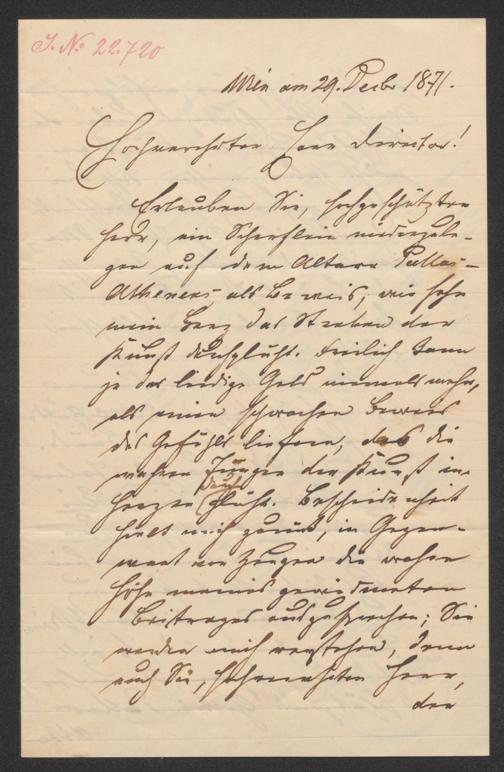 J. No 22.720
Wien am 29. Decbr 1871.
Hochverehrter Herr Director!
Erlauben Sie, hochgeschätzter
Herr, ein Scherflein niederzule-
gen auf dem Altare Pallas-
Athenens, als Beweis, wie sehr
mein Herz das Streben der
Kunst durchglüht. Freilich kann
ja das leidige Geld niemals mehr,
als einen schwachen Beweis
des Gefühls liefern, das die
wahren Jünger der Kunst im
Herzen durchglüht. Bescheidenheit
hielt mich zurück, in Gegen-
wart von Zeugen die wahre
Höhe meines gewidmeten
Beitrages auszusprechen; Sie
werden mich verstehen, denn
auch Sie, hochverehrter Herr,
der